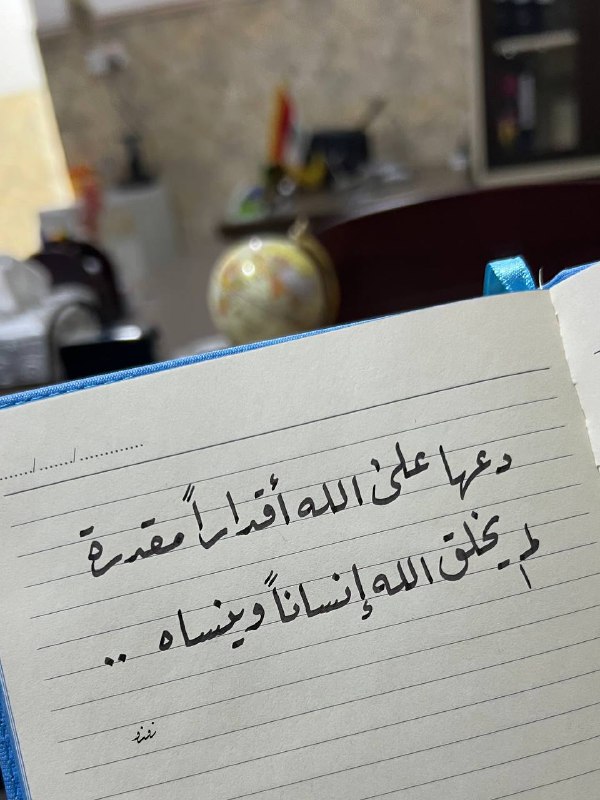 ....../....../............
دعها على الله أقداراً مقدرة
لم يخلق الله إنساناً وينساه ..